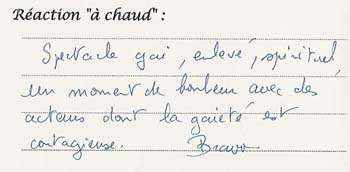 Réaction "à chaud" :
Spectacle gai, enlevé, spirituel,
un moment de bonheur avec des
acteurs dont la gaieté est
contagieuse. Bravo